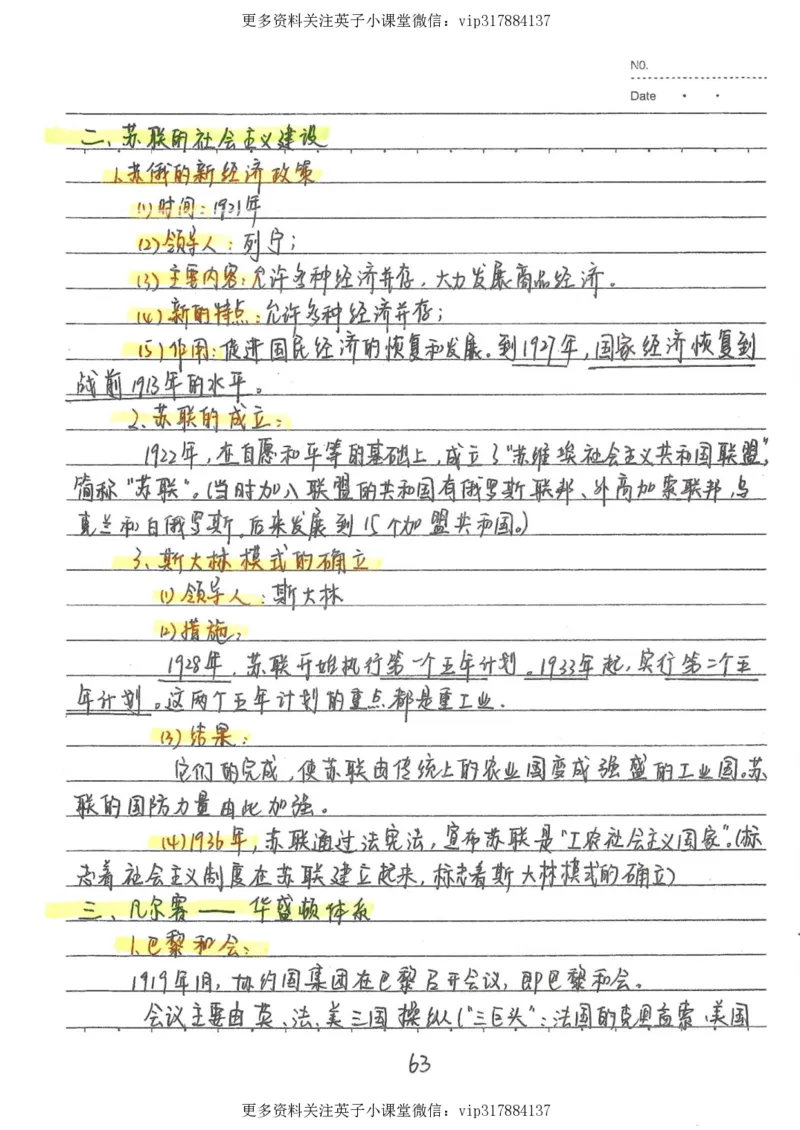 更多资料关注英子小课堂微信：vip317884137
NO.
Date
二、苏联的社会主义建设
1.苏俄的新经济政策
(1)时间：1921年
(2)领导人：列宁；
(3)主要内容：允许多种经济并存，大力发展商品经济。
(4)新的特点：允许多种经济并存；
(5)作用：促进国民经济的恢复和发展。到1927年，国家经济恢复到
战前1913年的水平。
2.苏联的成立：
1922年，在自愿和平等的基础上，成立了“苏维埃社会主义共和国联盟”，
简称“苏联”。(当时加入联盟的共和国有俄罗斯联邦、外高加索联邦，乌
克兰和白俄罗斯。后来发展到15个加盟共和国。)
3、斯大林模式的确立
(1)领导人：斯大林
(2)措施：
1928年，苏联开始执行第一个五年计划。1933年起，实行第二个五
年计划。这两个五年计划的重点都是重工业．
(3)结果：
它们的完成，使苏联由传统上的农业国变成强盛的工业国。苏
联的国防力量由此加强。
(4)1936年，苏联通过法宪法，宣布苏联是“工农社会主义国家”。(标
志着社会主义制度在苏联建立起来，标志着斯大林模式的确立)
三、凡尔赛——华盛顿体系
1.巴黎和会：
1919年1月，协约国集团在巴黎召开会议，即巴黎和会。
会议主要由英、法、美三国操纵(“三巨头”：法国的克里孟索、美国
63
更多资料关注英子小课堂微信：vip317884137